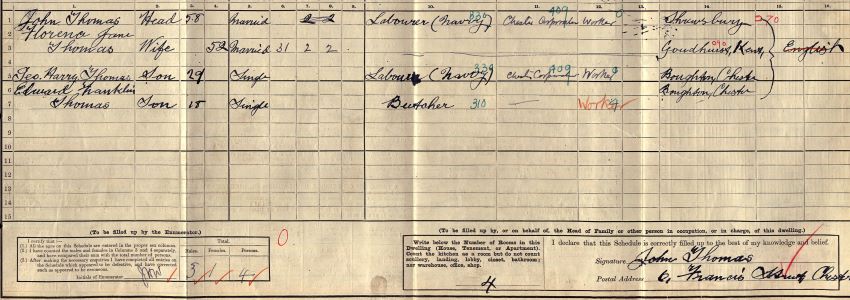 1. 2. 3. 4. 5. 6. 7. 8. 9. 10. 11. 12. 13. 14. 15. 16.
1 John Thomas Head 58 Married 2 2 Labourer (Navvy) 330 Chester Corporation 409 Worker Shrewsbury 270
2 Florence Jane
3 Thomas Wife 52 Married 31 2 2 Goudhurst, Kent 090 English
5 Geo. Harry Thomas Son 29 Single Labourer (Navvy) 330 Chester Corporation 409 Worker Boughton, Chester
6 Edward Franklin Boughton, Chester
7 Thomas Son 18 Single Butcher 310 — Worker
8
9
10
11
12
13
14
15
(To be filled up by the Enumerator.)
I certify that:—
(1.) All the ages on this Schedule are entered in the proper sex columns.
(2.) I have counted the males and females in Columns 3 and 4 separately, and have compared their sum with the total number of persons.
(3.) After making the necessary enquiries I have completed all entries on the Schedule which appeared to be defective, and have corrected such as appeared to be erroneous.
Initials of Enumerator
Total.
Males. Females. Persons.
3 1 4
0.
(To be filled up by, or on behalf of, the Head of Family or other person in occupation, or in charge, of this dwelling.)
Write below the Number of Rooms in this Dwelling (House, Tenement, or Apartment). Count the kitchen as a room but do not count scullery, landing, lobby, closet, bathroom; nor warehouse, office, shop.
4
I declare that this Schedule is correctly filled up to the best of my knowledge and belief.
Signature John Thomas
Postal Address 6, Francis Street Chester